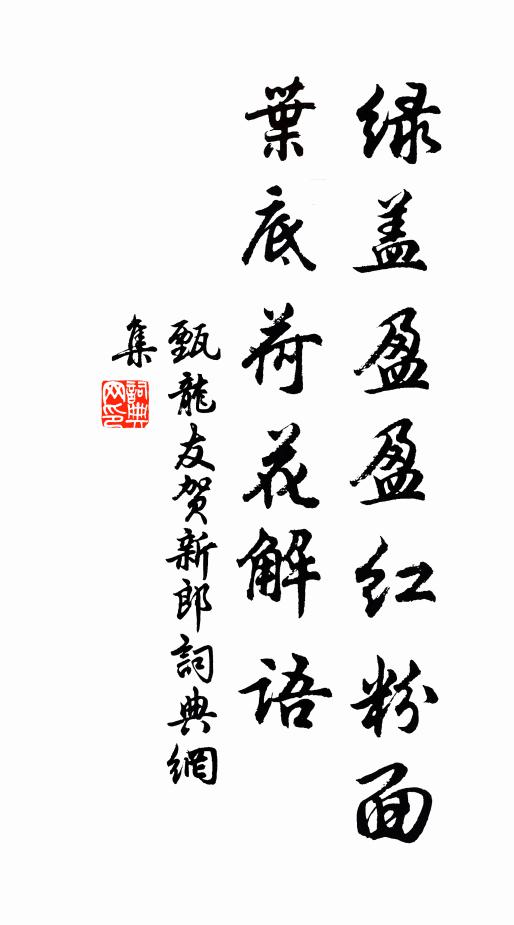 绿盖盈盈红粉面
葉底荷花解语
甄龍友贺新郎詞典網
集
詞典
网印